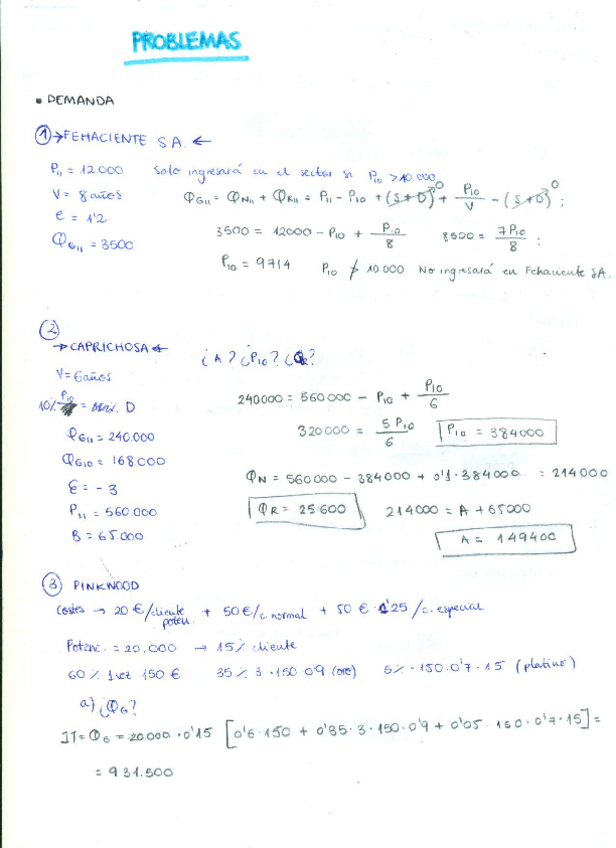 PROBLEMAS
• DEMANDA
① → FEHACIENTE S.A. ←
P₁₁ = 12000 Solo ingresará en el sector si P₁₀ > 10.000
V = 8 años Q_G₁₁ = Q_N₁₁ + Q_R₁₁ = P₁₁ - P₁₀ + (S+D)⁰ + P₁₀/V - (S+D)⁰ ;
e = 1'2
Q_G₁₁ = 3500 3500 = 12000 - P₁₀ + P₁₀/8 8500 = 7P₁₀/8 ;
P₁₀ = 9714 P₁₀ ≯ 10.000 No ingresará en Fehaciente S.A.
②
→ CAPRICHOSA ← ¿A? ¿P₁₀? ¿Q_R?
V = 6 años
10% P₁₀ = D
240000 = 560000 - P₁₀ + P₁₀/6
Q_G₁₁ = 240.000 320000 = 5P₁₀/6 P₁₀ = 384000
Q_G₁₀ = 168.000
Q_N = 560000 - 384000 + 0'1·384000 = 214000
Ɛ = -3
P₁₁ = 560.000 Q_R = 25600 214000 = A + 65000
B = 65.000 A = 149400
③ PINKWOOD
Costes → 20 €/cliente poten. + 50 €/c. normal + 50 € · 1'25 /c. especial
Potenc. = 20.000 → 15% cliente
60% 1 vez 150 € 35% 3·150·0'9 (oro) 5% · 150·0'7·15 (platino)
a) ¿Q_G?
IT = Q_G = 20.000 · 0'15 [0'6·150 + 0'35·3·150·0'9 + 0'05·150·0'7·15] =
= 931.500